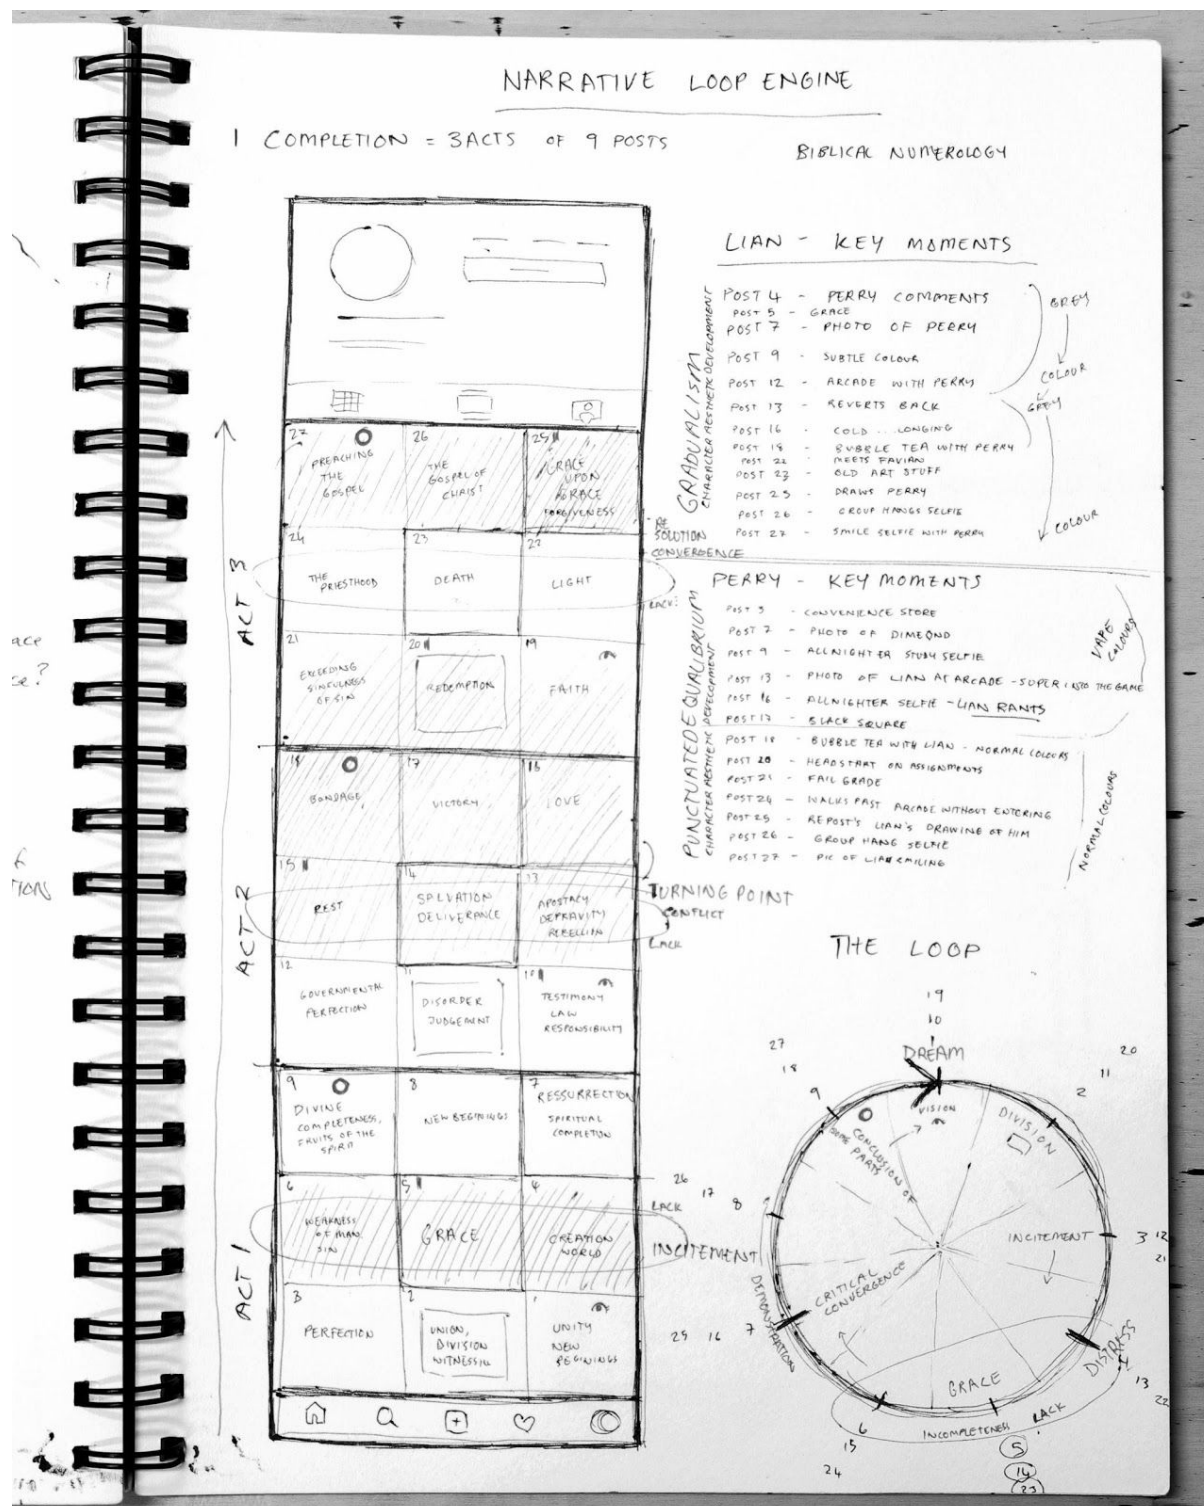 NARRATIVE LOOP ENGINE
1 COMPLETION = 3 ACTS OF 9 POSTS
BIBLICAL NUMEROLOGY
27
PREACHING
THE
GOSPEL
26
THE
GOSPEL OF
CHRIST
25
GRACE
UPON
GRACE
FORGIVENESS
24
THE
PRIESTHOOD
23
DEATH
22
LIGHT
RE
SOLUTION
CONVERGENCE
LACK
ACT 3
21
EXCEEDING
SINFULNESS
OF SIN
20
REDEMPTION
19
FAITH
18
BONDAGE
17
VICTORY
16
LOVE
15
REST
14
SALVATION
DELIVERANCE
13
APOSTACY
DEPRAVITY
REBELLION
TURNING POINT
CONFLICT
LACK
ACT 2
12
GOVERNMENTAL
PERFECTION
11
DISORDER
JUDGEMENT
10
TESTIMONY
LAW
RESPONSIBILITY
9
DIVINE
COMPLETENESS,
FRUITS OF THE
SPIRIT
8
NEW BEGININGS
7
RESSURRECTION
SPIRITUAL
COMPLETION
6
WEAKNESS
OF MAN
SIN
5
GRACE
4
CREATION
WORLD
LACK
INCITEMENT
ACT 1
3
PERFECTION
2
UNION,
DIVISION
1
UNITY
NEW
BEGININGS
LIAN - KEY MOMENTS
GRADUALISM
CHARACTER AESTHETIC DEVELOPMENT
POST 4 - PERRY COMMENTS
POST 5 - GRACE
POST 7 - PHOTO OF PERRY
POST 9 - SUBTLE COLOUR
POST 12 - ARCADE WITH PERRY
POST 13 - REVERTS BACK
POST 16 - COLD ... LONGING
POST 18 - BUBBLE TEA WITH PERRY
POST 22 - MEETS FAVIAN
POST 23 - OLD ART STUFF
POST 25 - DRAWS PERRY
POST 26 - GROUP HANGS SELFIE
POST 27 - SMILE SELFIE WITH PERRY
GREY
COLOUR
GREY
COLOUR
PERRY - KEY MOMENTS
PUNCTUATED EQUALIBRIUM
CHARACTER AESTHETIC DEVELOPMENT
POST 3 - CONVENIENCE STORE
POST 7 - PHOTO OF DIMEOND
POST 9 - ALLNIGHTER STUDY SELFIE
POST 13 - PHOTO OF LIAN AT ARCADE - SUPER INTO THE GAME
POST 16 - ALLNIGHTER SELFIE - LIAN RANTS
POST 17 - BLACK SQUARE
POST 18 - BUBBLE TEA WITH LIAN - NORMAL COLOURS
POST 20 - HEADSTART ON ASSIGNMENTS
POST 21 - FAIL GRADE
POST 24 - WALKS PAST ARCADE WITHOUT ENTERING
POST 25 - REPOST'S LIAN'S DRAWING OF HIM
POST 26 - GROUP HANG SELFIE
POST 27 - PIC OF LIAN SMILING
VAPE
COLOURS
NORMAL COLOURS
THE LOOP
19
10
1
DREAM
VISION
20
11
2
DIVISION
INCITEMENT
3 12
21
DISTRESS
4
13
22
GRACE
INCOMPLETENESS
LACK
5
14
23
6
15
24
CRITICAL
CONVERGENCE
DEMONSTRATION
25 16 7
26
17
8
27
18
9
CONCLUSION OF
SOME PARTS